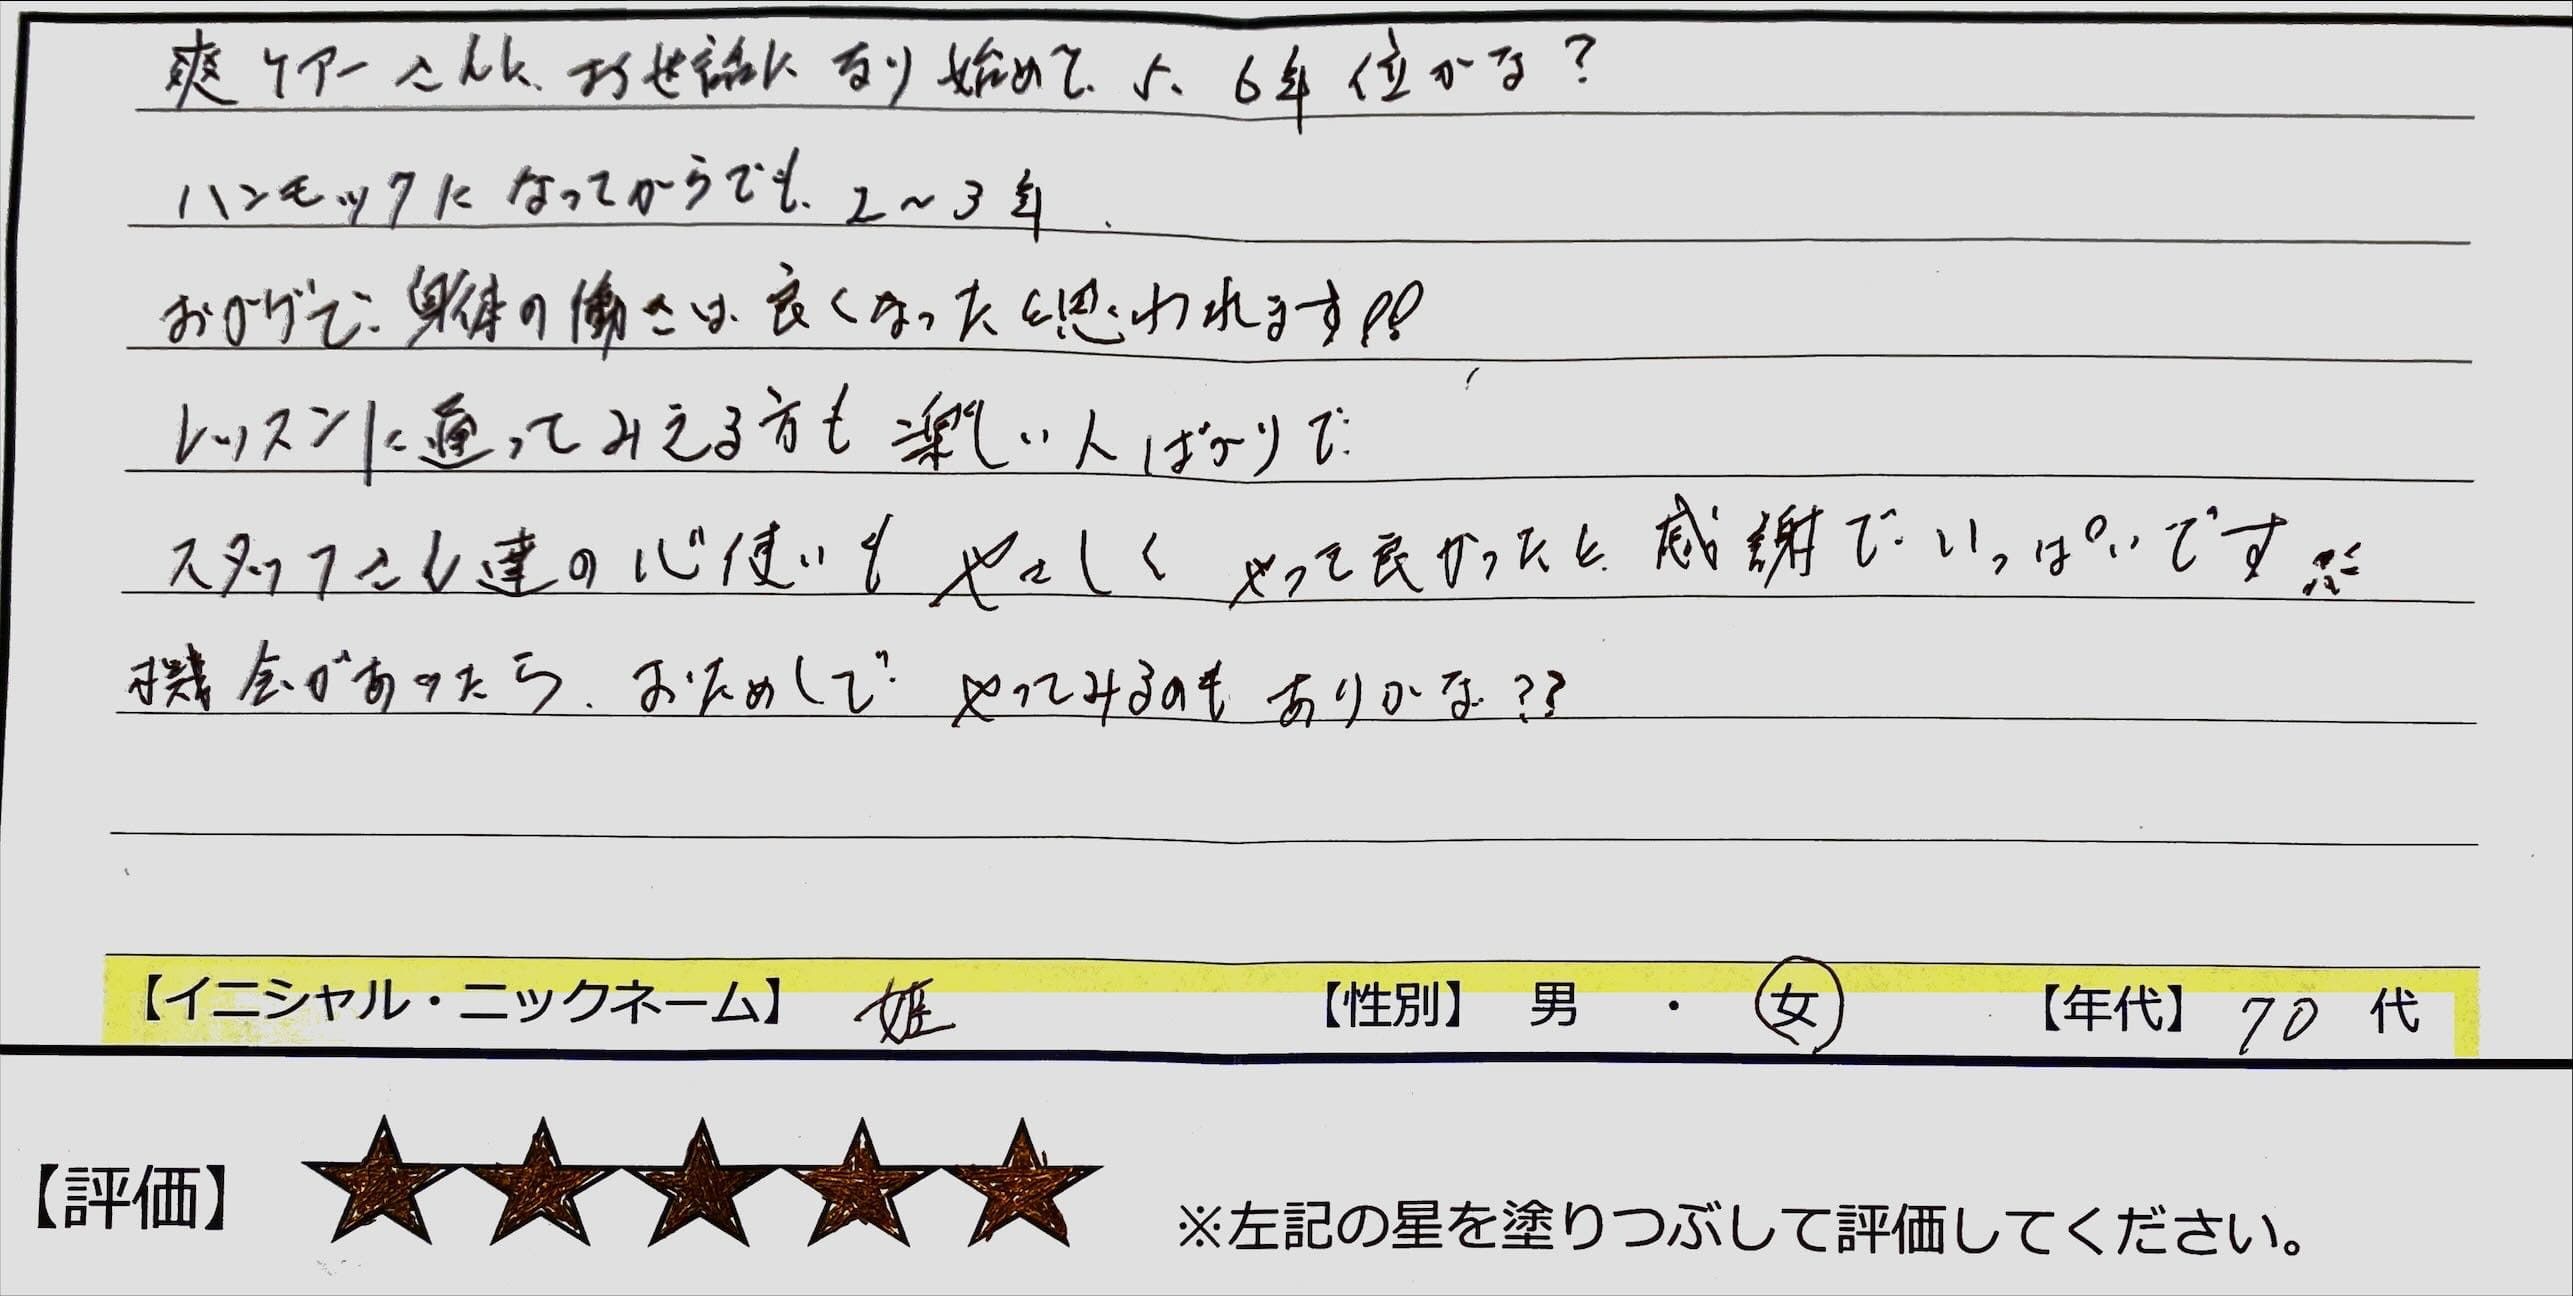 爽ケアーさんに、お世話になり始めて、5、6年位かな？
ハンモックになってからでも、2〜3年、
おかげで、身体の働きは、良くなったと思われます!!
レッスンに通ってみえる方も楽しい人ばかりで、
スタッフさん達の心使いもやさしくやって良かったと、感謝でいっぱいです
機会があったら、おためしでやってみるのもありかな??
【イニシャル・ニックネーム】 姫 【性別】 男 ・ 女 【年代】 70 代
【評価】 ★★★★★ ※左記の星を塗りつぶして評価してください。